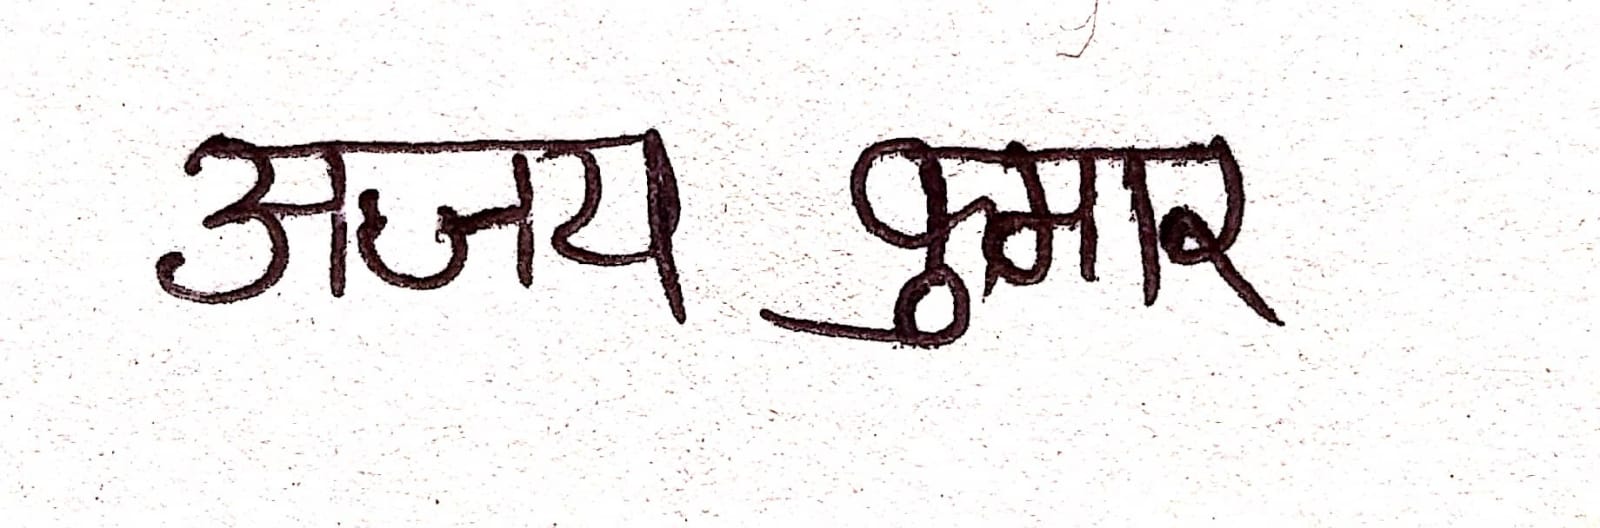 अजय कुमार